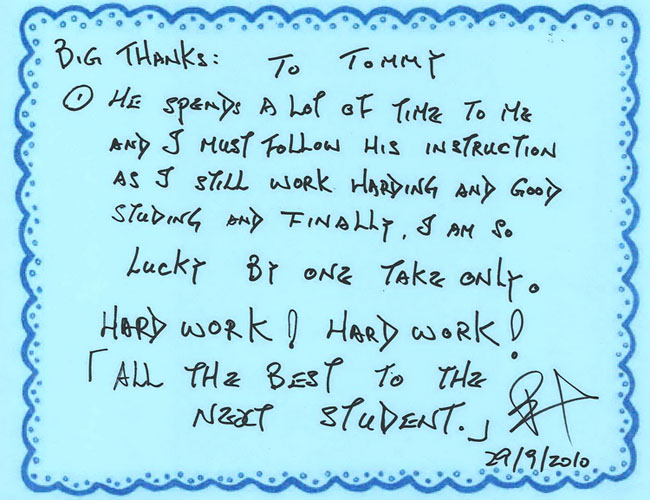 BIG THANKS: TO TOMMY
① HE SPENDS A LOT OF TIME TO ME
AND I MUST FOLLOW HIS INSTRUCTION
AS I STILL WORK HARDING AND GOOD
STUDING AND FINALLY, I AM SO
LUCKY BY ONE TAKE ONLY.
HARD WORK! HARD WORK!
「ALL THE BEST TO THE
NEXT STUDENT.」
29/9/2010